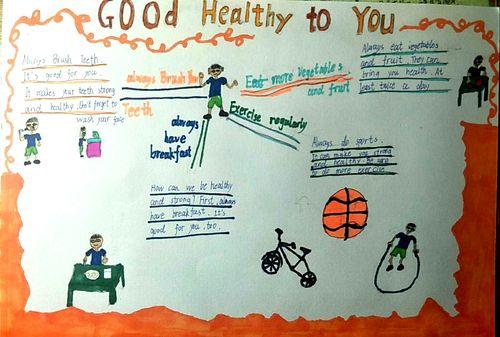 GOOD Healthy to YOU
Always Brush Teeth
It's good for you.
It makes your teeth strong
and healthy. Don't forget to
wash your face
always Brush Your
Teeth
Eat more Vegetables
and fruit
Always eat vegetables
and fruit. They can
bring you health. At
least twice a day
always
have
breakfast
Exercise regularly
Always do sports.
It can make you strong
and healthy. Be sure
to do more exercise
How can we be healthy
and strong? First, always
have breakfast. It's
good for you, too.